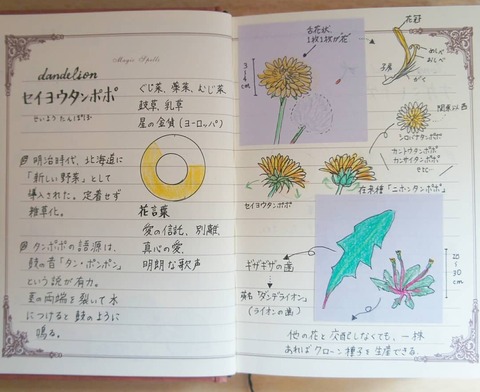 Magic Spells
dandelion
セイヨウタンポポ
せいよう たんぽぽ
くじ菜、藤菜、むじ菜
鼓草、乳草
星の金貨(ヨーロッパ)
明治時代、北海道に
「新しい野菜」として
導入された。定着せず
雑草化。
タンポポの語源は、
鼓の音「タン・ポンポン」
という説が有力。
茎の両端を裂いて水
につけると鼓のように
鳴る。
花言葉
愛の信託、別離
真心の愛
明朗な歌声
舌花状、
1枚1枚が花
3
4
cm
花冠
めしべ
おしべ
子房
がく
関東以西
シロバナタンポポ
カントウタンポポ
カンサイタンポポ
etc…
セイヨウタンポポ
在来種「ニホンタンポポ」
ギザギザの歯
英名「ダンデライオン」
(ライオンの歯)
20
30
cm
他の花と交配しなくても、一株
あればクローン種子を生産できる。